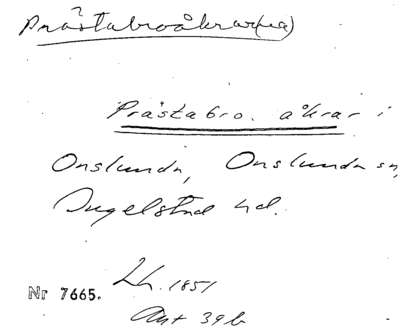 Prästabroåkrar(na)
Prästabro. åkrar i
Onslunda, Onslunda sn,
Ingelstad hd.
Lh. 1851
Nr 7665.
Akt 39b